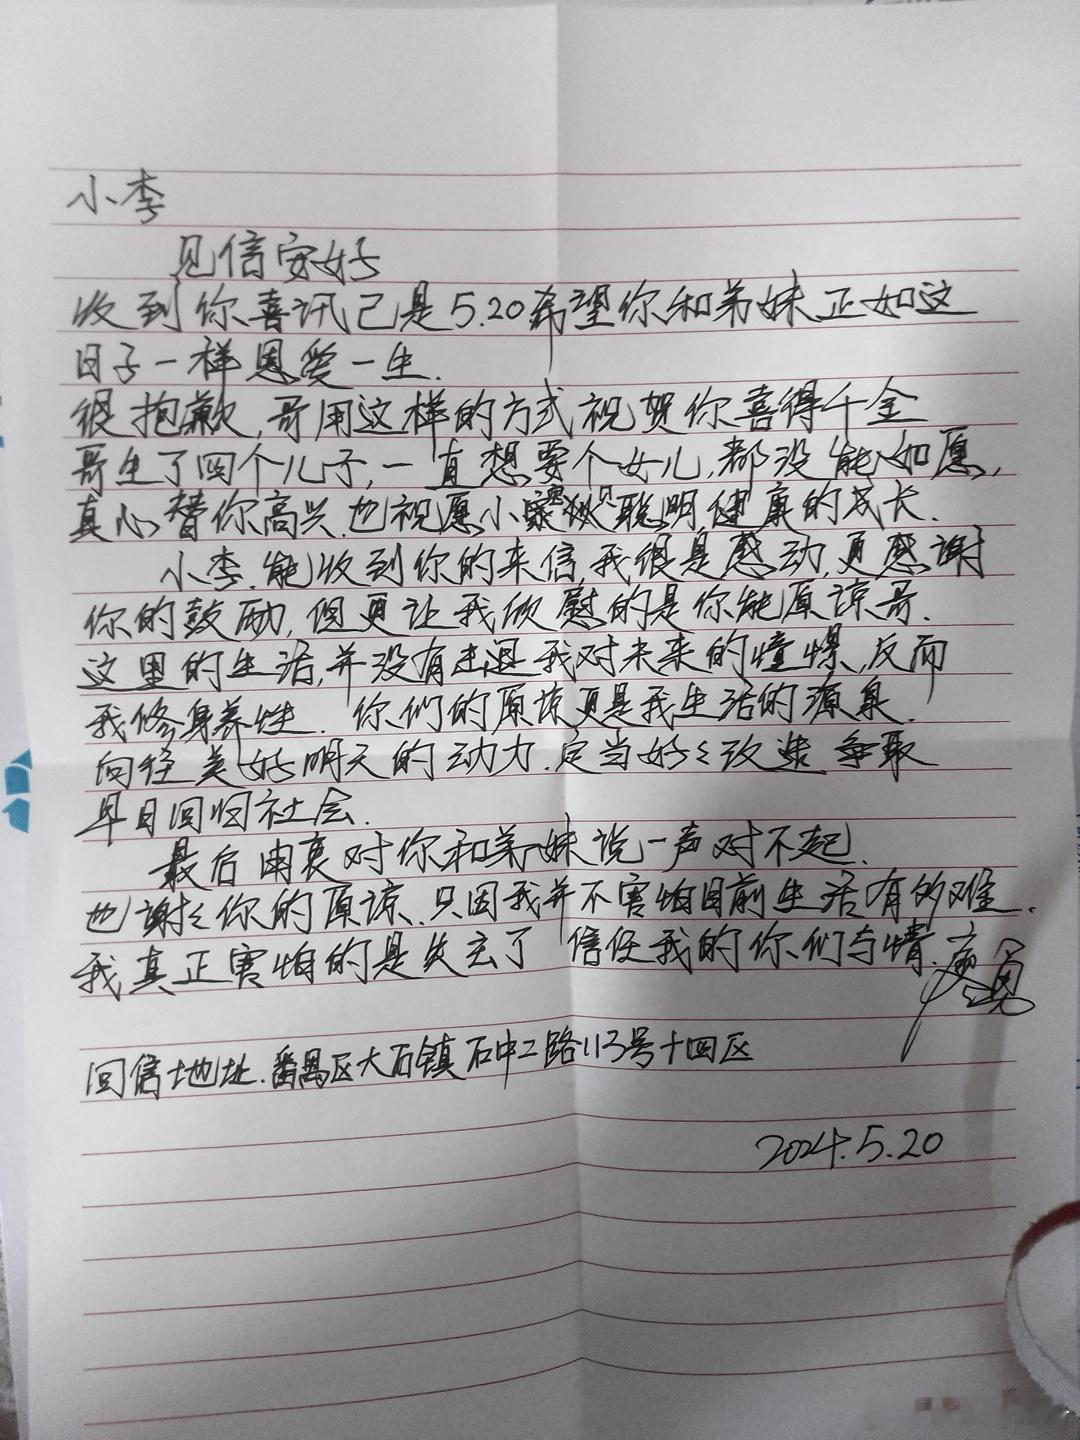 小李
见信安好
收到你喜讯已是5.20希望你和弟妹正如这
日子一样恩爱一生.
很抱歉,哥用这样的方式祝贺你喜得千金
哥生了四个儿子,一直想要个女儿,都没能如愿,
真心替你高兴.也祝愿小家聪明健康的成长.
小李.能收到你的来信,我很是感动,更感谢
你的鼓励,但更让我欣慰的是你能原谅哥.
这里的生活,并没有我对未来的憧憬,反而
我修身养性.你们的原谅更是我生活的源泉.
向往美好明天的动力.定当好々改造 争取
早日回归社会.
最后由衷对你和弟妹说一声对不起.
也谢々你的原谅.只因我并不害怕目前生活有多难.
我真正害怕的是失去了 信任我的你们与情.
回信地址.番禺区大石镇石中二路113号十四区
2024.5.20